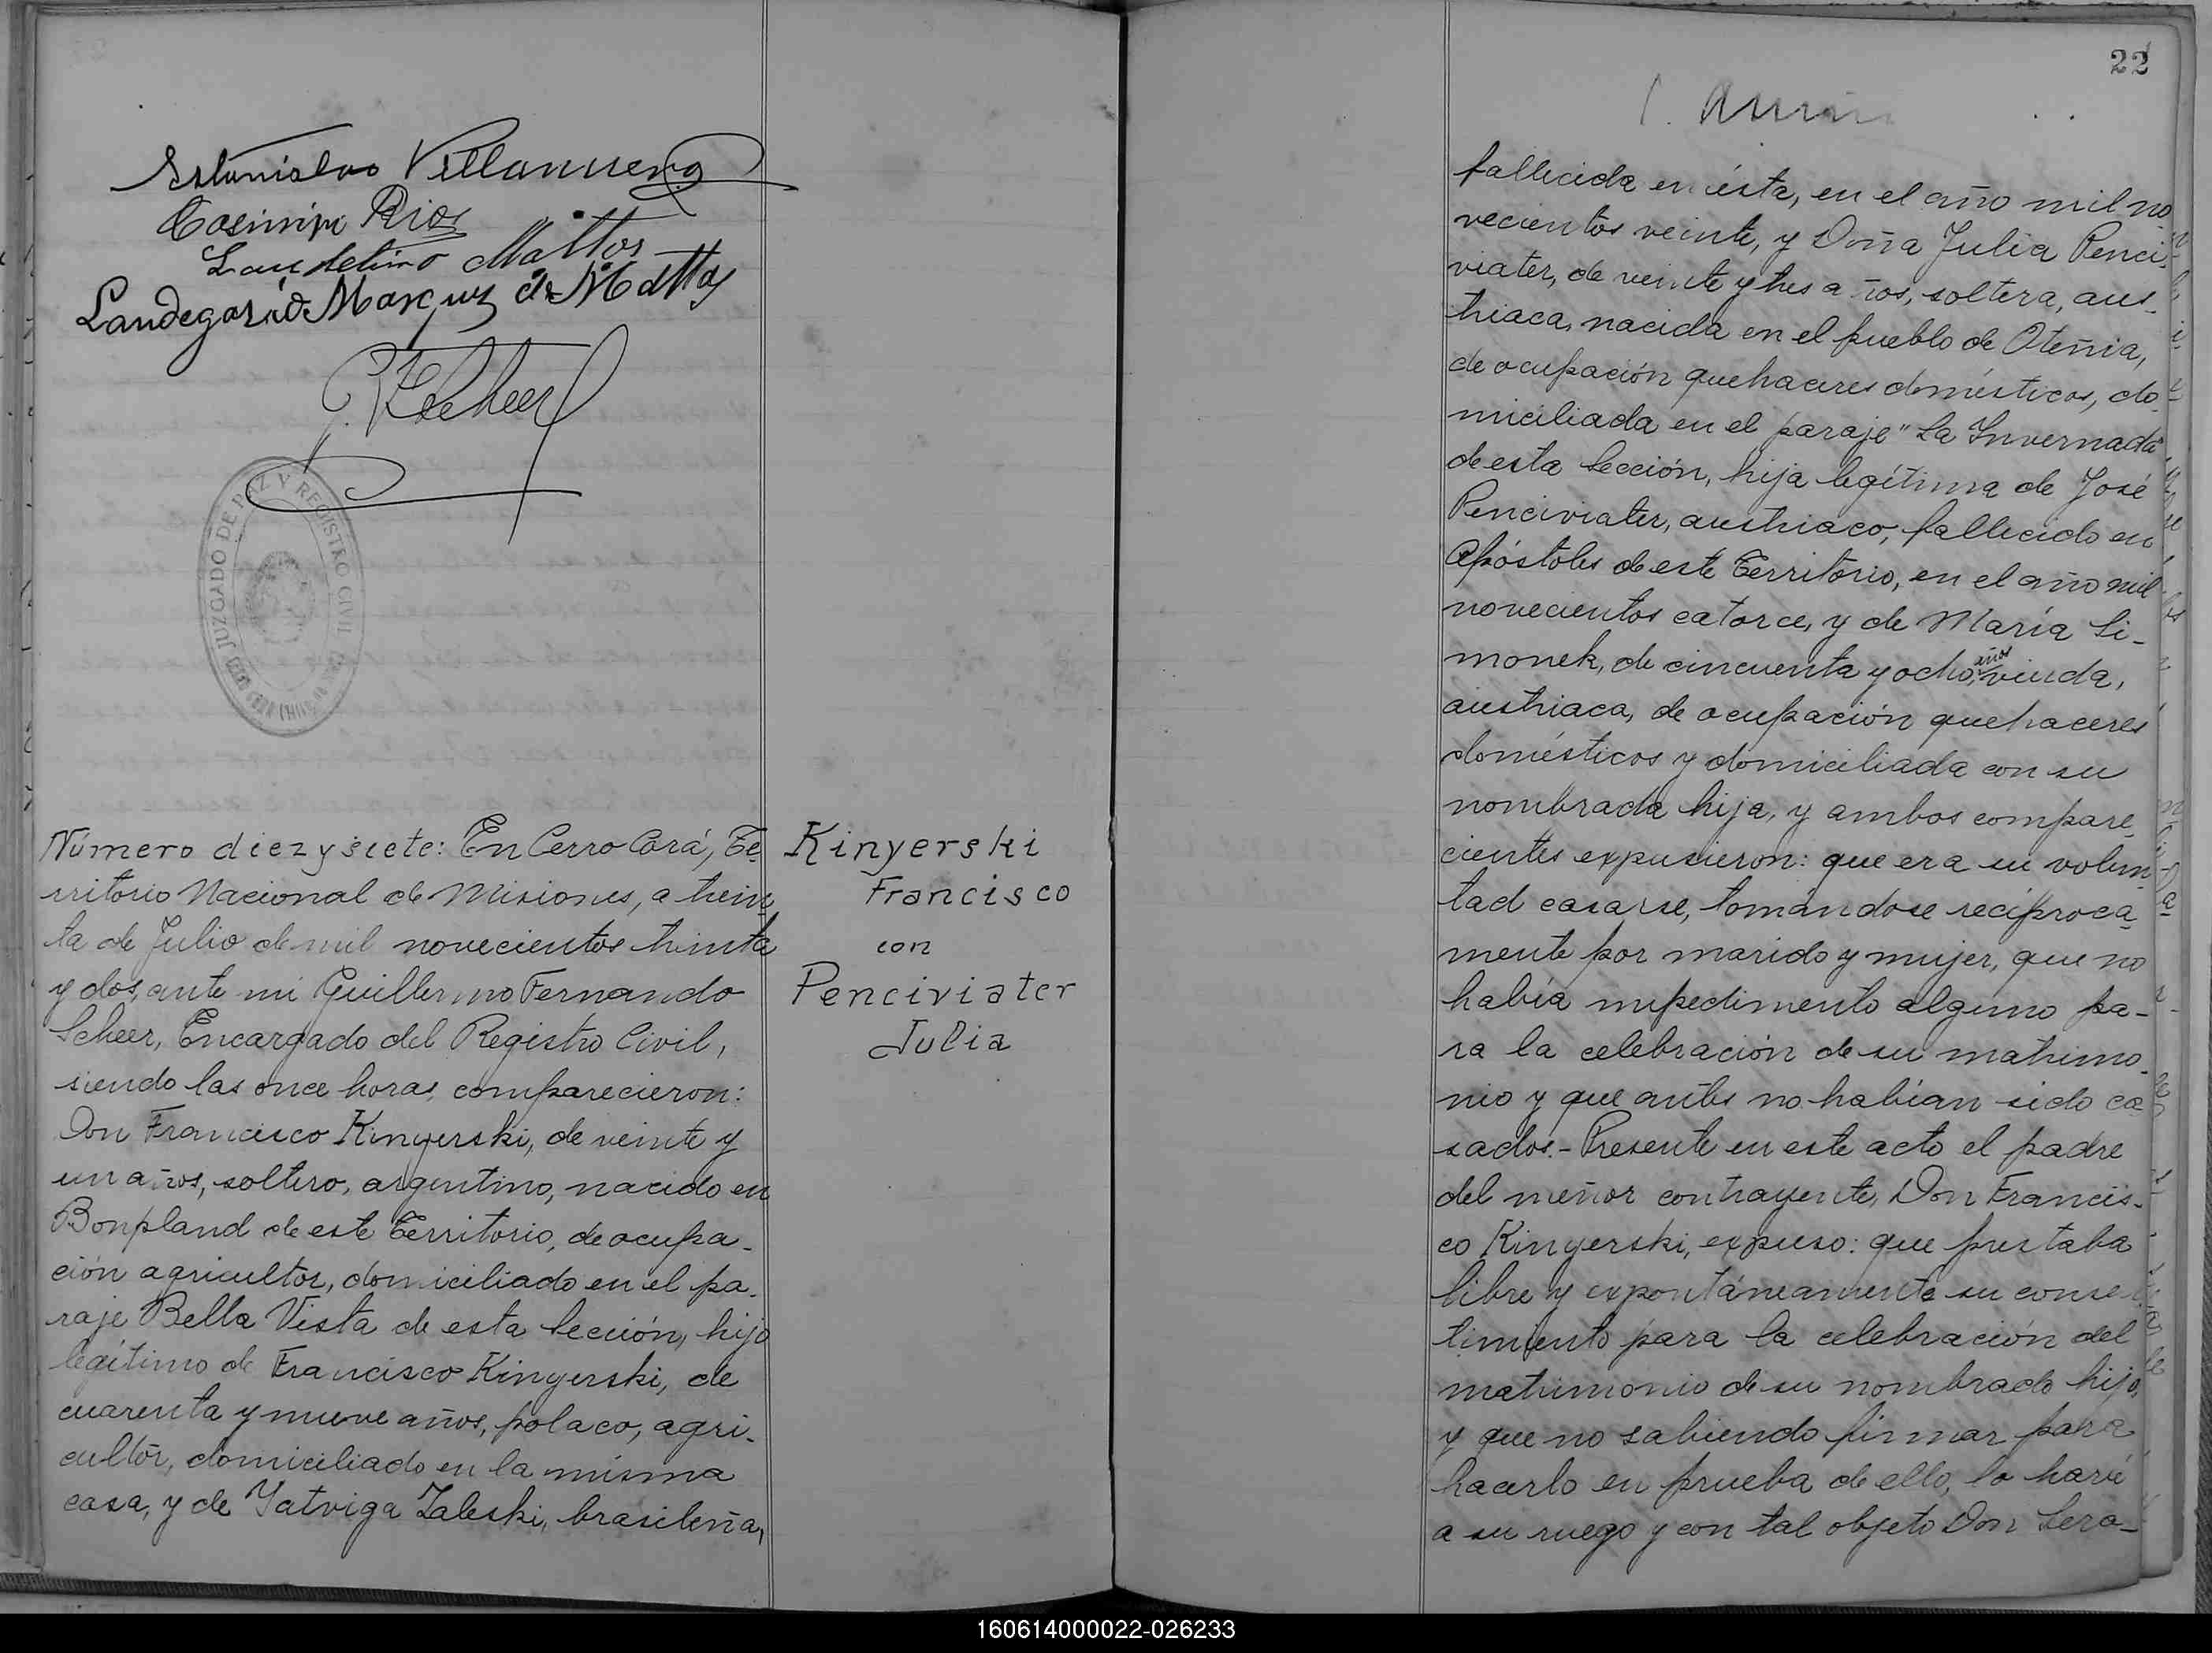 Estanislao Villanueva
Casimiro Rios
Laudelino Mattos
Landegaria Marquez de Mattos
G. F. Scheer
JUZGADO DE PAZ Y REGISTRO CIVIL
Número diez y siete: En Cerro Corá, Te-
rritorio Nacional de Misiones, a trein-
ta de Julio de mil novecientos treinta
y dos, ante mi Guillermo Fernando
Scheer, Encargado del Registro Civil,
siendo las once horas, comparecieron:
Don Francisco Kinyerski, de veinte y
un años, soltero, argentino, nacido en
Bonpland de este Territorio, de ocupa-
ción agricultor, domiciliado en el pa-
raje Bella Vista de esta Sección, hijo
legítimo de Francisco Kinyerski, de
cuarenta y nueve años, polaco, agri-
cultor, domiciliado en la misma
casa, y de Yatviga Zaleski, brasileña,
Kinyerski
Francisco
con
Penciviater
Julia
22
fallecida en ésta, en el año mil no-
vecientos veinte, y Doña Julia Penci-
viater, de veinte y tres años, soltera, aus-
triaca, nacida en el pueblo de Oteñia,
de ocupación quehaceres domésticos, do-
miciliada en el paraje "La Invernada"
de esta Sección, hija legítima de José
Penciviater, austriaco, fallecido en
Apóstoles de este Territorio, en el año mil
novecientos catorce, y de María Si-
monek, de cincuenta y ocho años, viuda,
austriaca, de ocupación quehaceres
domésticos y domiciliada con su
nombrada hija, y ambos compare-
cientes expusieron: que era su volun-
tad casarse, tomándose recíproca-
mente por marido y mujer, que no
había impedimento alguno pa-
ra la celebración de su matrimo-
nio y que antes no habían sido ca-
sados.- Presente en este acto el padre
del meñor contrayente, Don Francis-
co Kinyerski, expuso: que prestaba
libre y expontáneamente su consen-
timiento para la celebración del
matrimonio de su nombrado hijo,
y que no sabiendo firmar para
hacerlo en prueba de ello, lo haría
a su ruego y con tal objeto Don Sera-
160614000022-026233